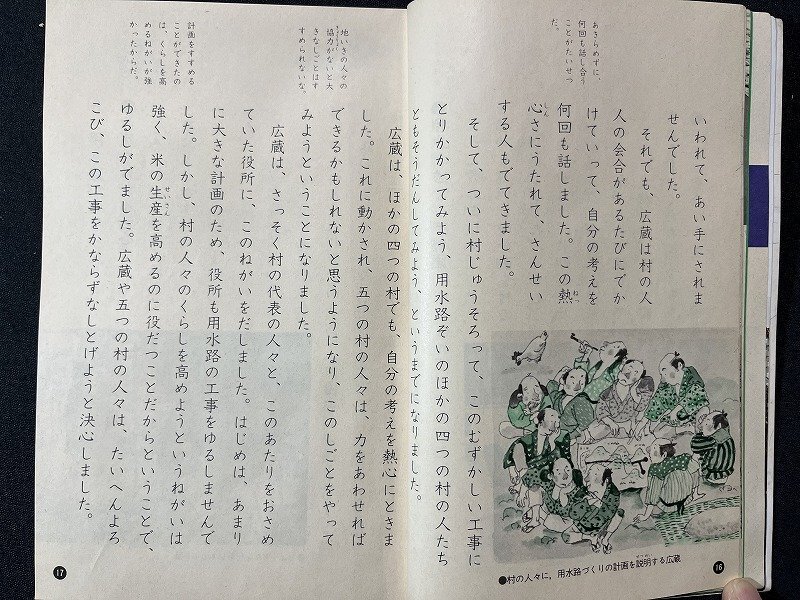 いわれて、あい手にされま
せんでした。
それでも、広蔵は村の人
人の会合があるたびにでか
けていって、自分の考えを
何回も話しました。この熱
ねっ
心さにうたれて、さんせい
しん
する人もでてきました。
そして、ついに村じゅうそろって、このむずかしい工事に
とりかかってみよう、用水路ぞいのほかの四つの村の人たち
ともそうだんしてみよう、というまでになりました。
あきらめずに、
何回も話し合う
ことがたいせつ
だ。
●村の人々に，用水路づくりの計画を説明する広蔵
せつめい
16
広蔵は、ほかの四つの村でも、自分の考えを熱心にときま
した。これに動かされ、五つの村の人々は、力をあわせれば
できるかもしれないと思うようになり、このしごとをやって
みようということになりました。
広蔵は、さっそく村の代表の人々と、このあたりをおさめ
ていた役所に、このねがいをだしました。はじめは、あまり
に大きな計画のため、役所も用水路の工事をゆるしませんで
した。しかし、村の人々のくらしを高めようというねがいは
強く、米の生産を高めるのに役だつことだからということで、
せいさん
ゆるしがでました。広蔵や五つの村の人々は、たいへんよろ
こび、この工事をかならずなしとげようと決心しました。
地いきの人々の
協力がないと大
きょうりょく
きなしごとはす
すめられないな。
計画をすすめる
ことができたの
は、くらしを高
めるねがいが強
かったからだ。
17